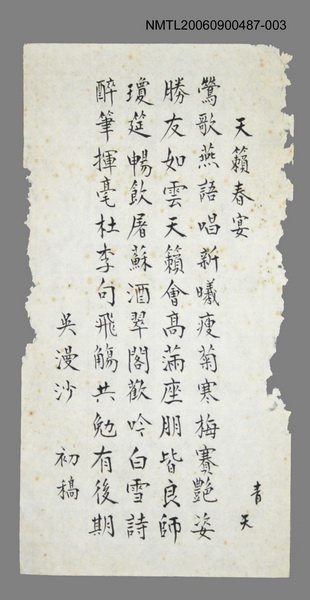 NMTL20060900487-003
天籟春宴
青天
鶯歌燕語唱新曦瘦菊寒梅賽艷姿
勝友如雲天籟會高滿座朋皆良師
瓊筵暢飲屠蘇酒翠閣歡吟白雪詩
醉筆揮毫杜李句飛觴共勉有後期
吳漫沙 初稿